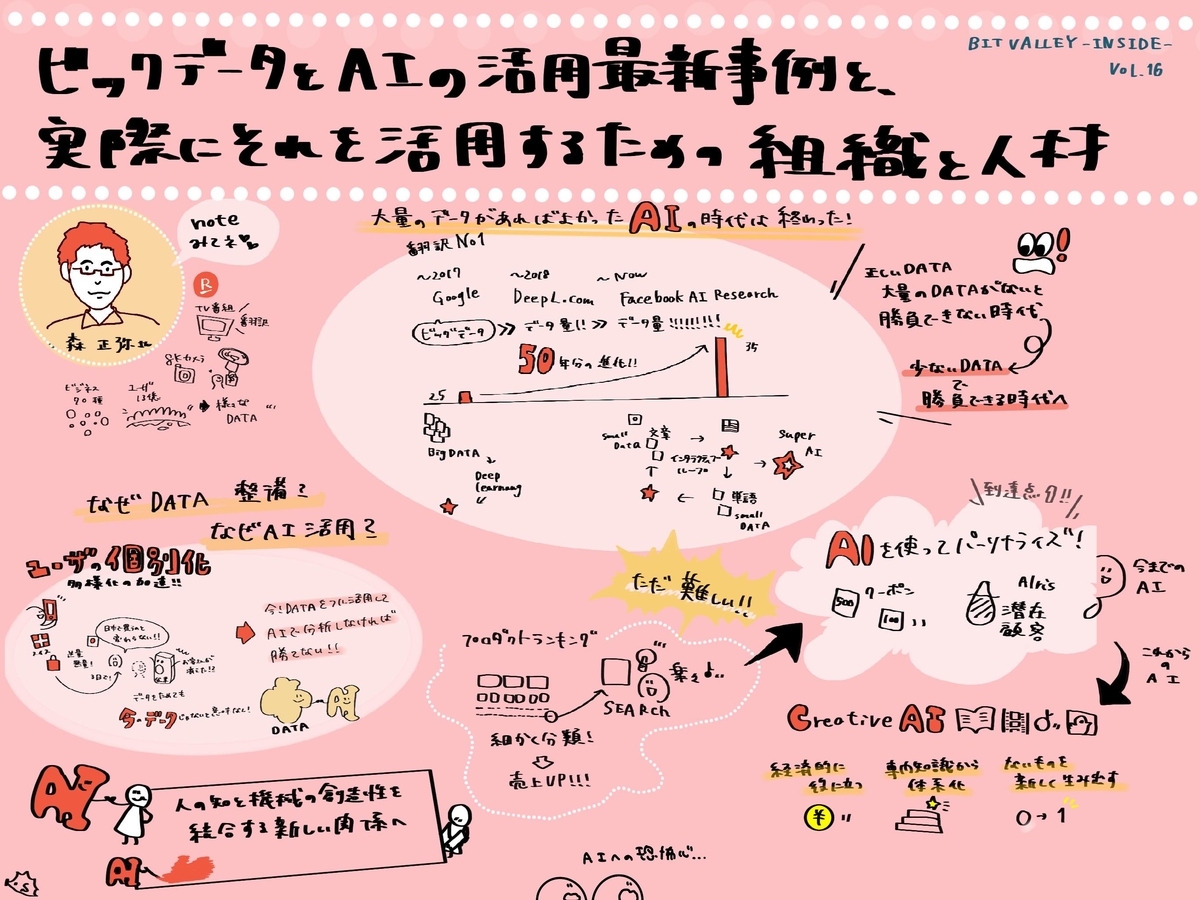 BIT VALLEY -INSIDE-
VOL.16
ビックデータとAIの活用最新事例と、
実際にそれを活用するための組織と人材
note
みてネ
R
TV番組
翻訳
森 正弥さん
8Kカメラ
ビジネス
70種
ユーザ
13億
様々な
DATA
大量のデータがあればよかったAIの時代は終わった!
翻訳No1
〜2017
〜2018
〜Now
Google
DeepL.com
Facebook AI Research
ビッグデータ
データ量!!
データ量!!!!!!!!!
50年分の進化!!
25
35
Big DATA
Deep
learning
small
Data
文章
インタラクティブ
ループ
単語
small
DATA
Super
AI
正しいDATA
大量のDATAがないと
勝負できない時代
少ないDATA
で
勝負できる時代へ
なぜDATA 整備?
なぜAI活用?
ユーザの個別化
多様化の加速!!
スイス
3日で!
データをためても
今のデータじゃないと意味なし!
今!DATAをフルに活用して
AIで分析しなければ
勝てない!!
DATA
AI
ただ難しい!!
プロダクトランキング
SEARCH
楽々♪
細かく分類!
売上UP!!!
到達点 9!!
AIを使ってパーソナライズ!
500
クーポン
100
AIris
潜在
顧客
今までの
AI
これから
のAI
Creative AI
経済的に
役に立つ
¥
専門知識から
体系化
ないものを
新しく生み出す
0→1
AI
人の知と機械の創造性を
結合する新しい関係へ
AI
AIへの恐怖心…